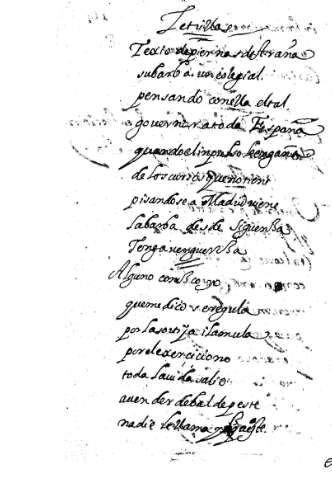 Letrillas
Texto de piernas de Araña
su barba un colegial
pensando con ella el tal
governar a toda España
quando el impulso le engaña
de los curros que no tiene
pisandosela a Madrid viene
la barba desde Siguenza
Tenga verguenza
Alguno conozco yo
que medico se regula
por la sortija i la mula
por el exercicio no
toda la vida salio
a vender de balde peste
nadie le llama
e